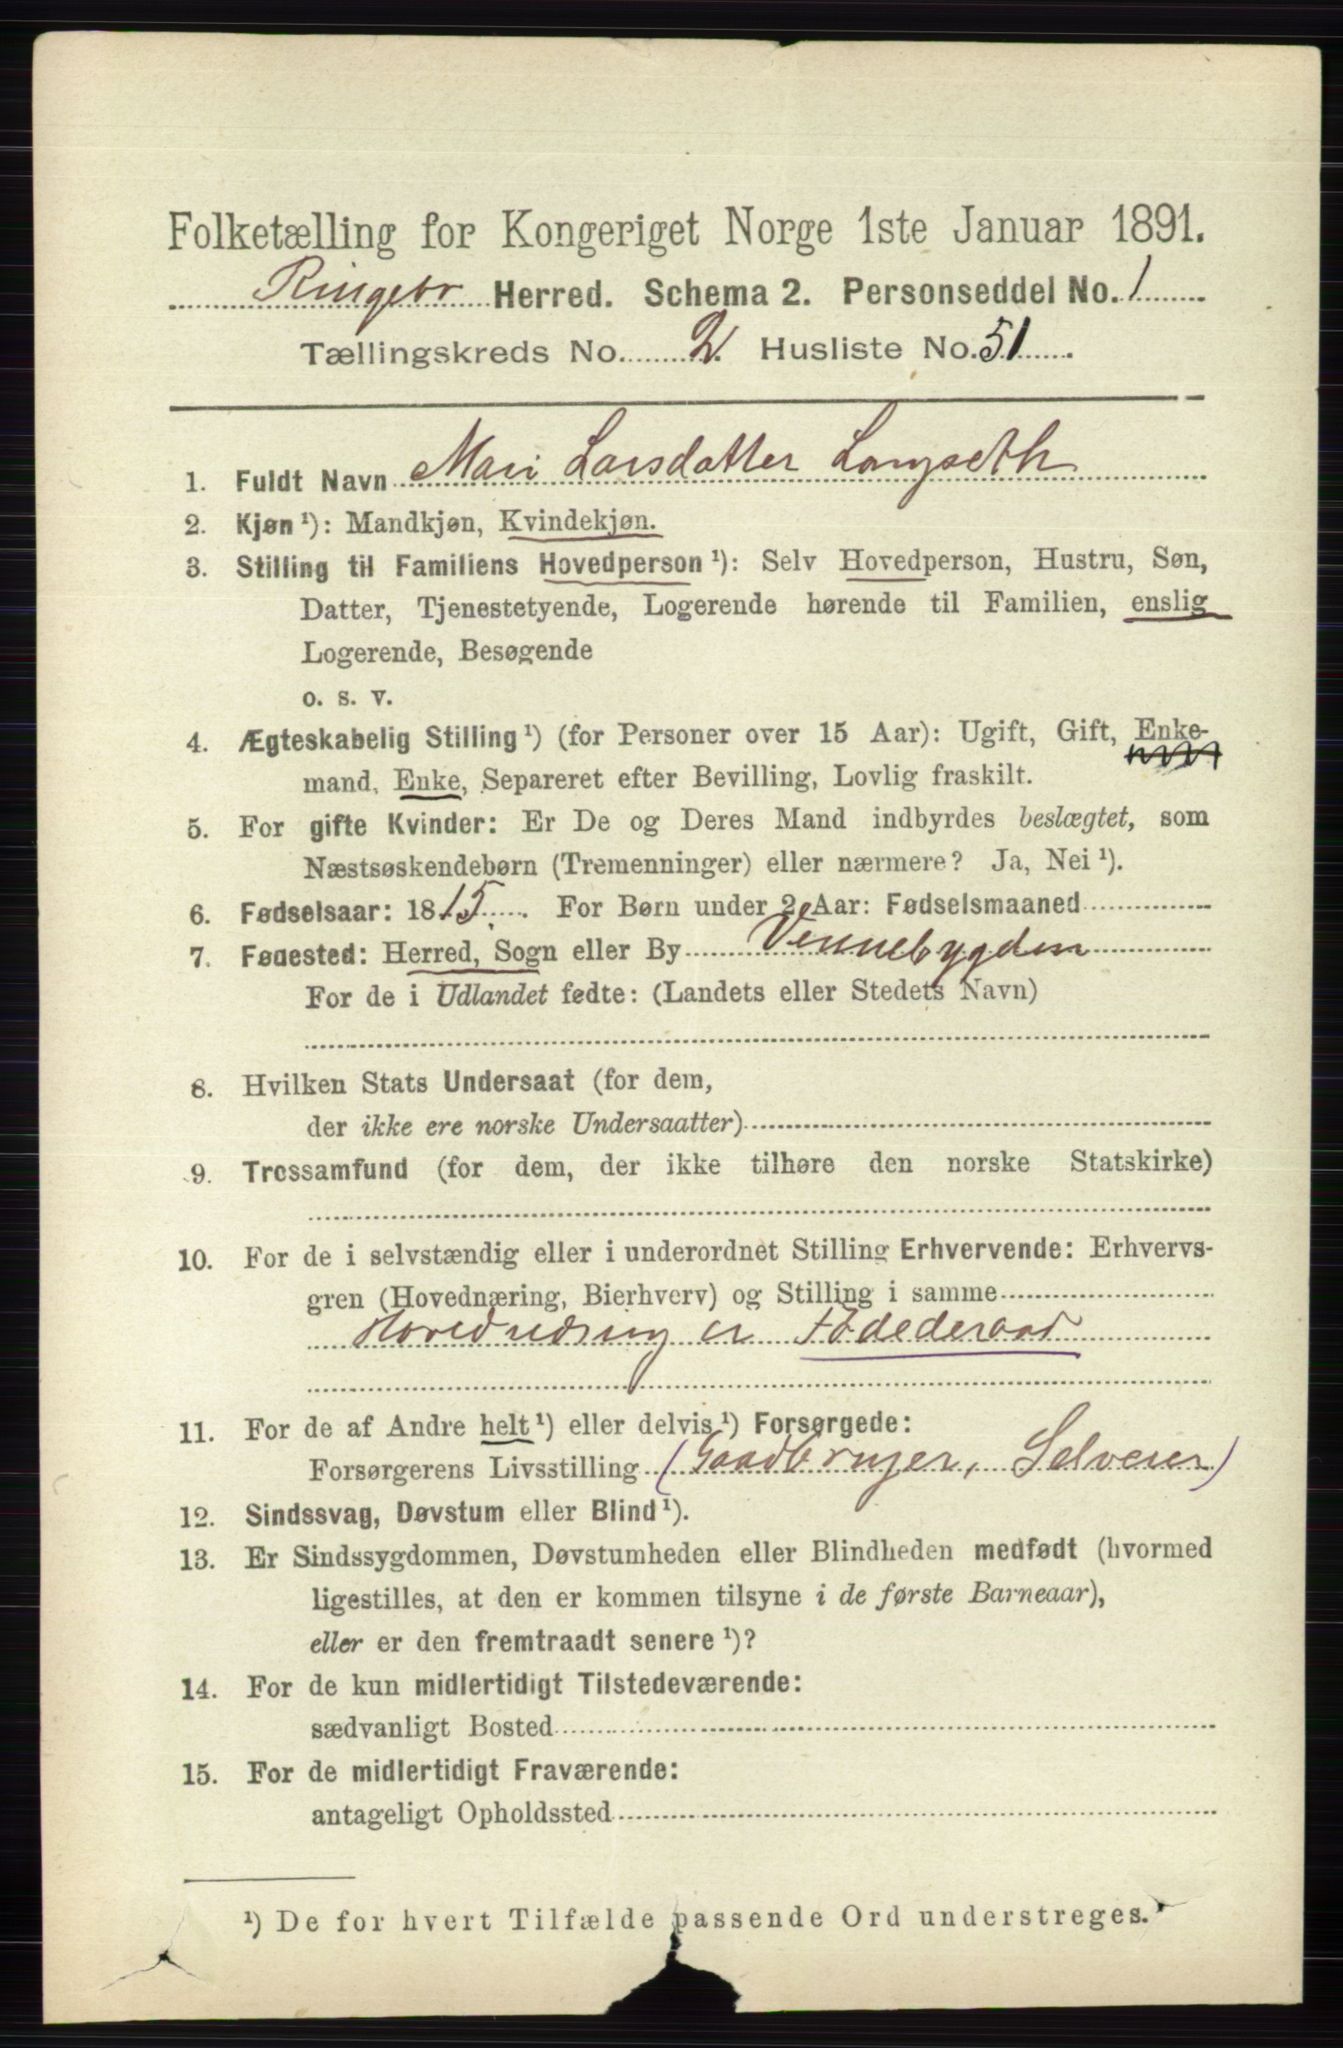 Folketælling for Kongeriget Norge 1ste Januar 1891.
Ringebr Herred. Schema 2. Personseddel No. 1
Tællingskreds No. 2. Husliste No. 51
1. Fuldt Navn Mari Larsdatter Langseth
2. Kjøn ¹): Mandkjøn, Kvindekjøn.
3. Stilling til Familiens Hovedperson ¹): Selv Hovedperson, Hustru, Søn,
Datter, Tjenestetyende, Logerende hørende til Familien, enslig
Logerende, Besøgende
o. s. v.
4. Ægteskabelig Stilling ¹) (for Personer over 15 Aar): Ugift, Gift, Enke-
mand, Enke, Separeret efter Bevilling, Lovlig fraskilt.
5. For gifte Kvinder: Er De og Deres Mand indbyrdes beslægtet, som
Næstsøskendebørn (Tremenninger) eller nærmere? Ja, Nei ¹).
6. Fødselsaar: 1815. For Børn under 2 Aar: Fødselsmaaned
7. Føuested: Herred, Sogn eller By Vennebygden
For de i Udlandet fødte: (Landets eller Stedets Navn)
8. Hvilken Stats Undersaat (for dem,
der ikke ere norske Undersaatter)
9. Trossamfund (for dem, der ikke tilhøre den norske Statskirke)
10. For de i selvstændig eller i underordnet Stilling Erhvervende: Erhvervs-
gren (Hovednæring, Bierhverv) og Stilling i samme
Hovednæring er Føderaad
11. For de af Andre helt ¹) eller delvis ¹) Forsørgede:
Forsørgerens Livsstilling (Gaadbruger, Selveier)
12. Sindssvag, Døvstum eller Blind ¹).
13. Er Sindssygdommen, Døvstumheden eller Blindheden medfødt (hvormed
ligestilles, at den er kommen tilsyne i de første Barneaar),
eller er den fremtraadt senere ¹)?
14. For de kun midlertidigt Tilstedeværende:
sædvanligt Bosted
15. For de midlertidigt Fraværende:
antageligt Opholdssted
¹) De for hvert Tilfælde passende Ord understreges.